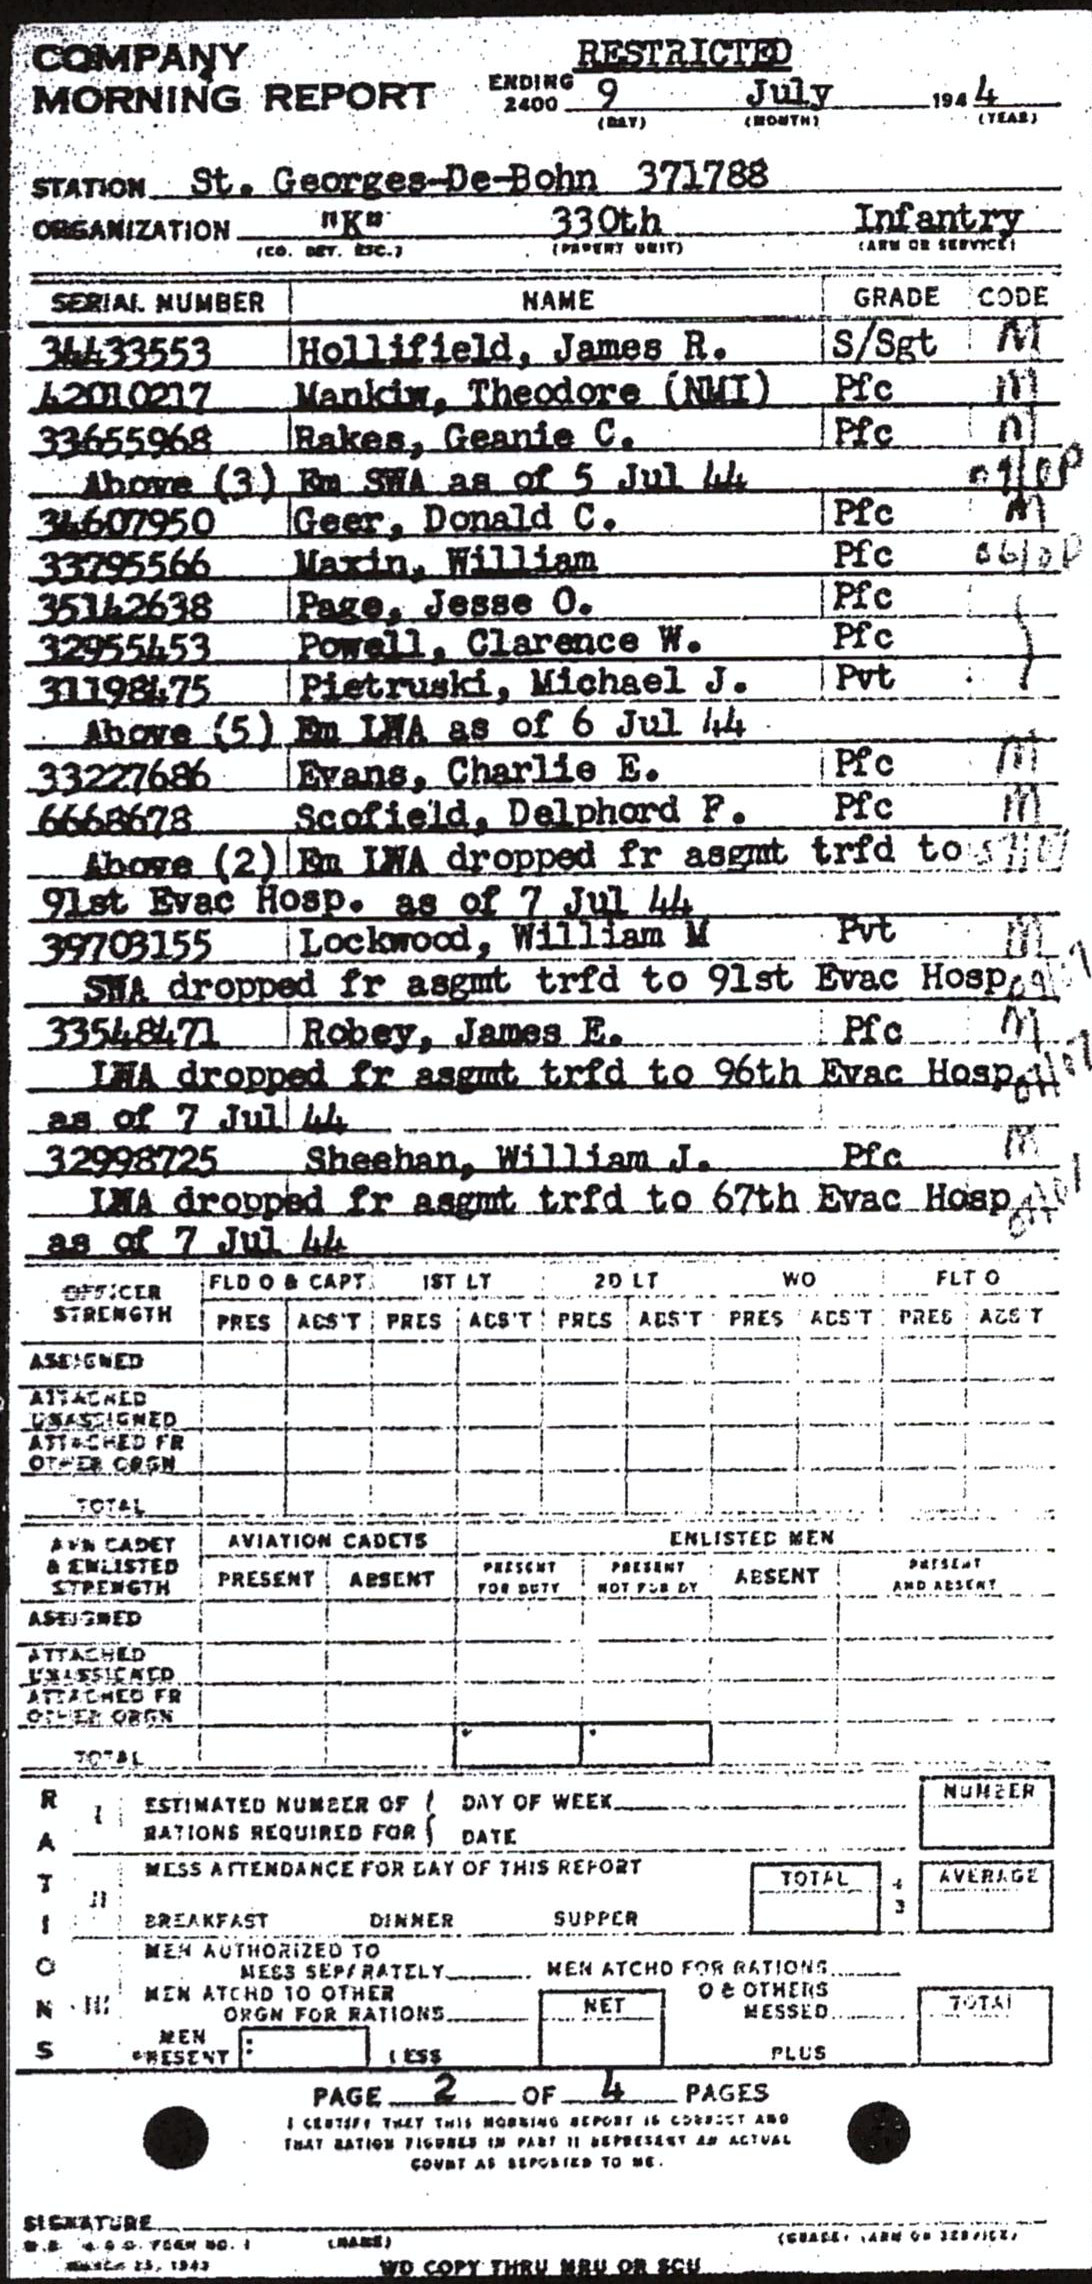 COMPANY RESTRICTED
MORNING REPORT ENDING 2400 9 July 1944
(DAY) (MONTH) (YEAR)
STATION St. Georges-De-Bohn 371788
ORGANIZATION "K" 330th Infantry
(CO. DET. ETC.) (PARENT UNIT) (ARM OR SERVICE)
SERIAL NUMBER NAME GRADE CODE
34433553 Hollifield, James R. S/Sgt M
42010217 Mankiw, Theodore (NMI) Pfc M
33655968 Rakes, Geanie C. Pfc M
Above (3) Em SWA as of 5 Jul 44
34607950 Geer, Donald C. Pfc M
33795566 Maxin, William Pfc
35142638 Page, Jesse O. Pfc
32955453 Powell, Clarence W. Pfc
31198475 Pietruski, Michael J. Pvt
Above (5) Em LWA as of 6 Jul 44
33227686 Evans, Charlie E. Pfc M
6668678 Scofield, Delphord F. Pfc M
Above (2) Em LWA dropped fr asgmt trfd to
91st Evac Hosp. as of 7 Jul 44
39703155 Lockwood, William M Pvt M
SWA dropped fr asgmt trfd to 91st Evac Hosp
33548471 Robey, James E. Pfc M
LWA dropped fr asgmt trfd to 96th Evac Hosp
as of 7 Jul 44
32998725 Sheehan, William J. Pfc M
LWA dropped fr asgmt trfd to 67th Evac Hosp
as of 7 Jul 44
OFFICER STRENGTH FLD O & CAPT 1ST LT 2D LT WO FLT O
PRES ABS'T PRES ABS'T PRES ABS'T PRES ABS'T PRES ABS'T
ASSIGNED
ATTACHED
UNASSIGNED
ATTACHED FR
OTHER ORGN
TOTAL
AVN CADET & ENLISTED STRENGTH AVIATION CADETS ENLISTED MEN
PRESENT ABSENT PRESENT FOR DUTY PRESENT NOT FOR DY ABSENT PRESENT AND ABSENT
ASSIGNED
ATTACHED
UNASSIGNED
ATTACHED FR
OTHER ORGN
TOTAL
RATIONS
I ESTIMATED NUMBER OF DAY OF WEEK NUMBER
RATIONS REQUIRED FOR DATE
II MESS ATTENDANCE FOR DAY OF THIS REPORT TOTAL ÷ 3 AVERAGE
BREAKFAST DINNER SUPPER
III MEN AUTHORIZED TO
MESS SEPARATELY MEN ATCHD FOR RATIONS
MEN ATCHD TO OTHER O & OTHERS
ORGN FOR RATIONS NET MESSED TOTAL
MEN
PRESENT LESS PLUS
PAGE 2 OF 4 PAGES
I CERTIFY THAT THIS MORNING REPORT IS CORRECT AND
THAT RATION FIGURES IN PART II REPRESENT AN ACTUAL
COUNT AS REPORTED TO ME.
SIGNATURE
W.D. A.G.O. FORM NO. 1 (NAME) (GRADE, ARM OR SERVICE)
MARCH 25, 1943 WD COPY THRU MRU OR SCU